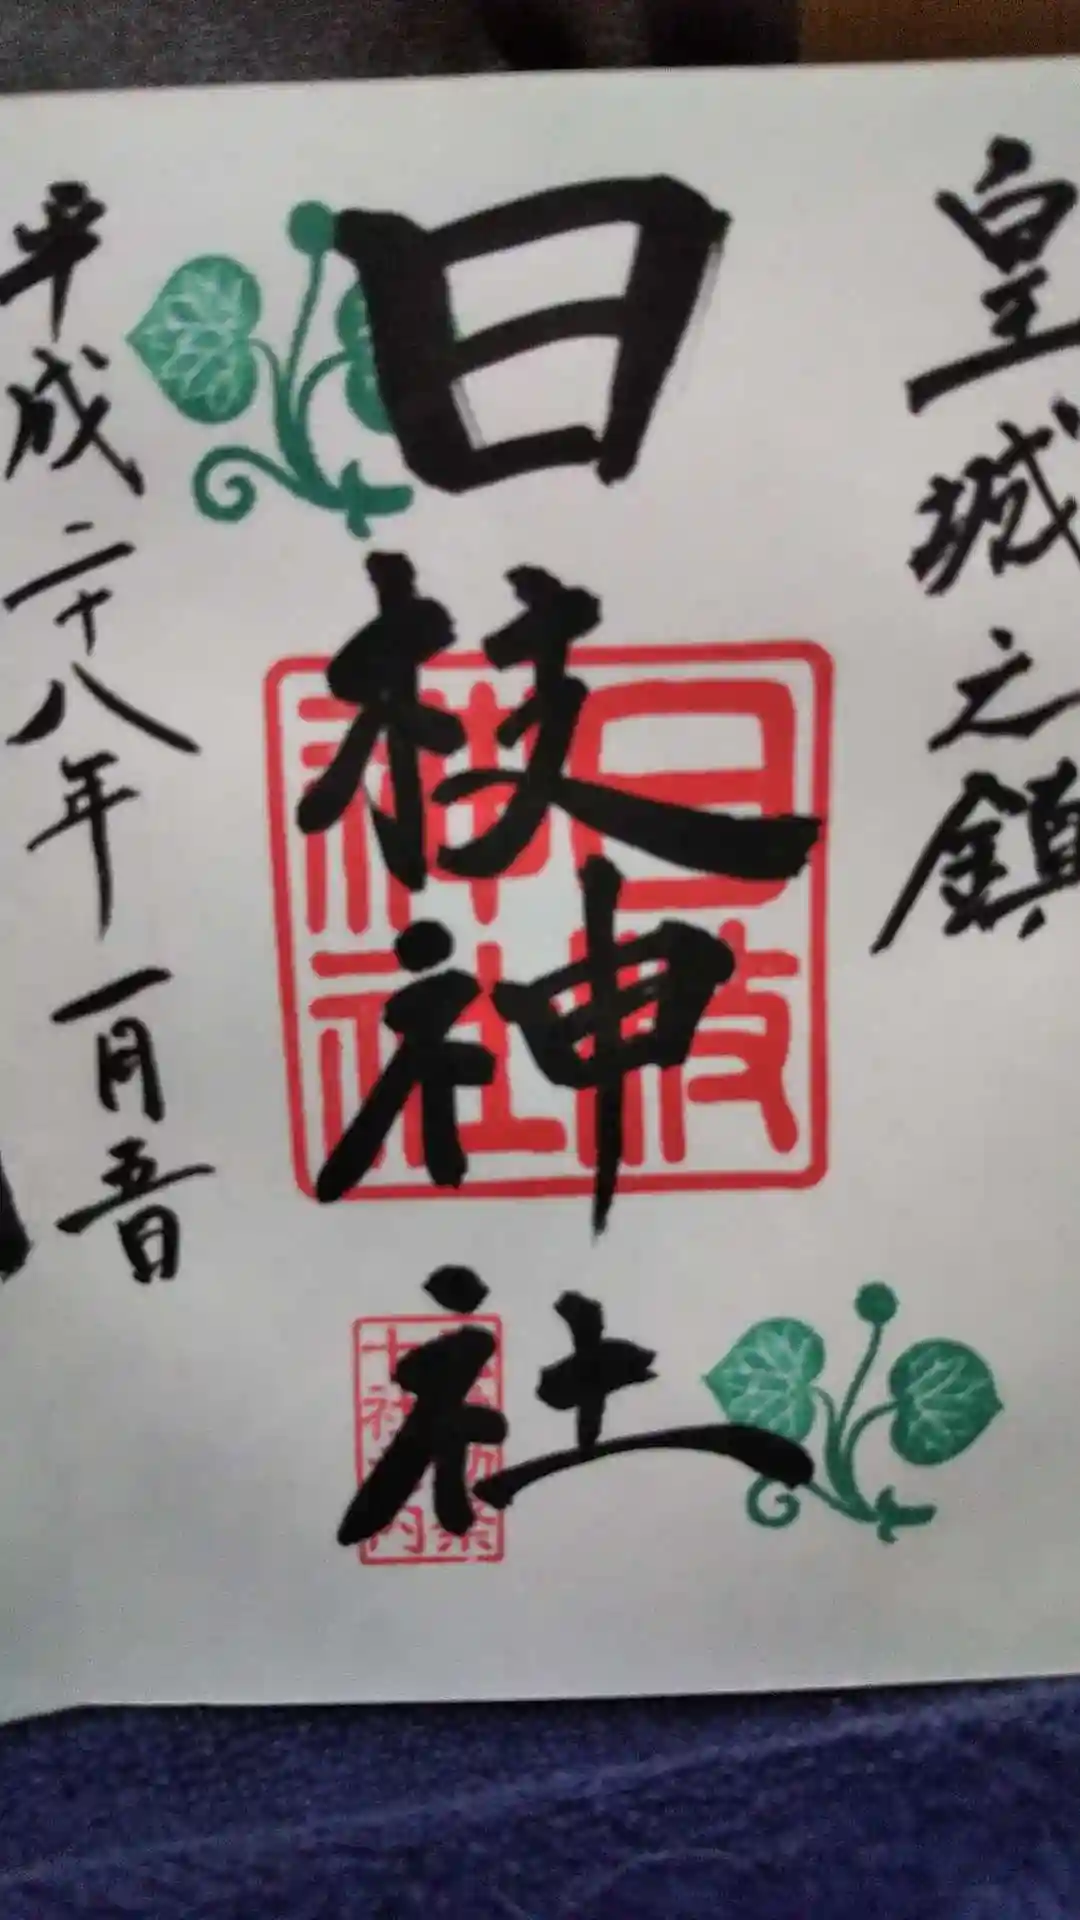 皇城之鎮
日枝神社
日枝
神社
平成二十八年一月五日